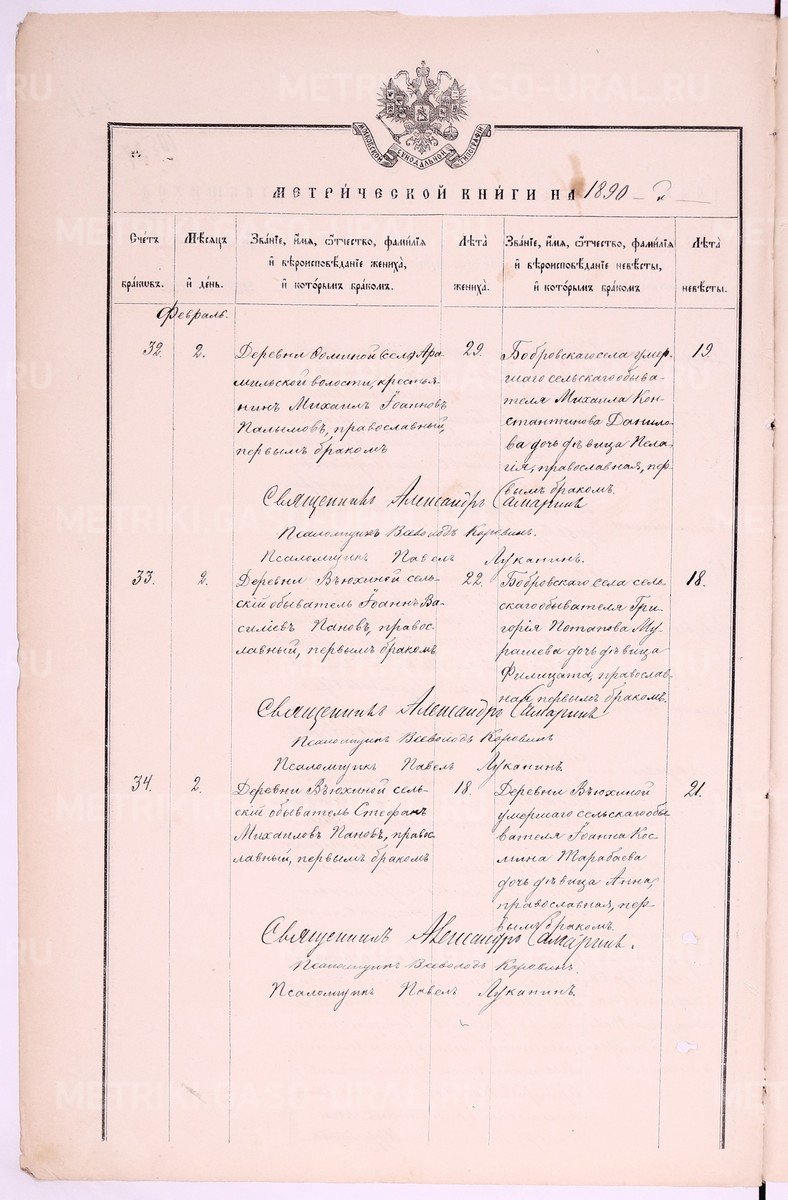 МОСКОВСКОЙ СѴНОДАЛЬНОЙ ТИПОГРАФІИ
МЕТРИ́ЧЕСКОЙ КНИ́ГИ НА 1890 г
Сче́тъ бра́кωвъ.
Мѣ́сяцъ и҆ де́нь.
Зва́ніе, и҆́мя, ѻ҆́тчество, фамѝлія
и҆ вѣроисповѣ́даніе жениха̀,
и҆ кото́рымъ бра́комъ.
Лѣ́та жениха̀.
Зва́ніе, и҆́мя, ѻ҆́тчество, фамѝлія
и҆ вѣроисповѣ́даніе невѣ́сты,
и҆ кото́рымъ бра́комъ
Лѣ́та невѣ́сты.
Февраль.
32.
2.
Деревни Фоминой (села Ара-
мильской волости, крестья-
нинъ Михаилъ Іоанновъ
Палымовъ, православный,
первымъ бракомъ
29.
Бобровскаго села умер-
шаго сельскаго обыва-
теля Михаила Кон-
стантинова Данило-
ва дочь дѣвица Пела-
гія, православная, пер-
вымъ бракомъ.
19.
Священникъ Александръ Самаринъ
Псаломщикъ Всеволодъ Коровинъ.
Псаломщикъ Павелъ Луканинъ.
33.
2.
Деревни Вьюхиной сель-
скій обыватель Іоаннъ Ва-
силіевъ Пановъ, правос-
лавный, первымъ бракомъ
22.
Бобровскаго села сель-
скаго обывателя Гри-
горія Потапова Му-
рашева дочь дѣвица
Филицата, православ-
ная, первымъ бракомъ.
18.
Священникъ Александръ Самаринъ
Псаломщикъ Всеволодъ Коровинъ
Псаломщикъ Павелъ Луканинъ.
34.
2.
Деревни Вьюхиной сель-
скій обыватель Стефанъ
Михаиловъ Пановъ, правос-
лавный, первымъ бракомъ
18.
Деревни Вьюхиной
умершаго сельскаго обы-
вателя Іоанна Кос-
мина Жарабаева
дочь дѣвица Анна,
православная, пер-
вымъ бракомъ.
21.
Священникъ Александръ Самаринъ.
Псаломщикъ Всеволодъ Коровинъ.
Псаломщикъ Павелъ Луканинъ.